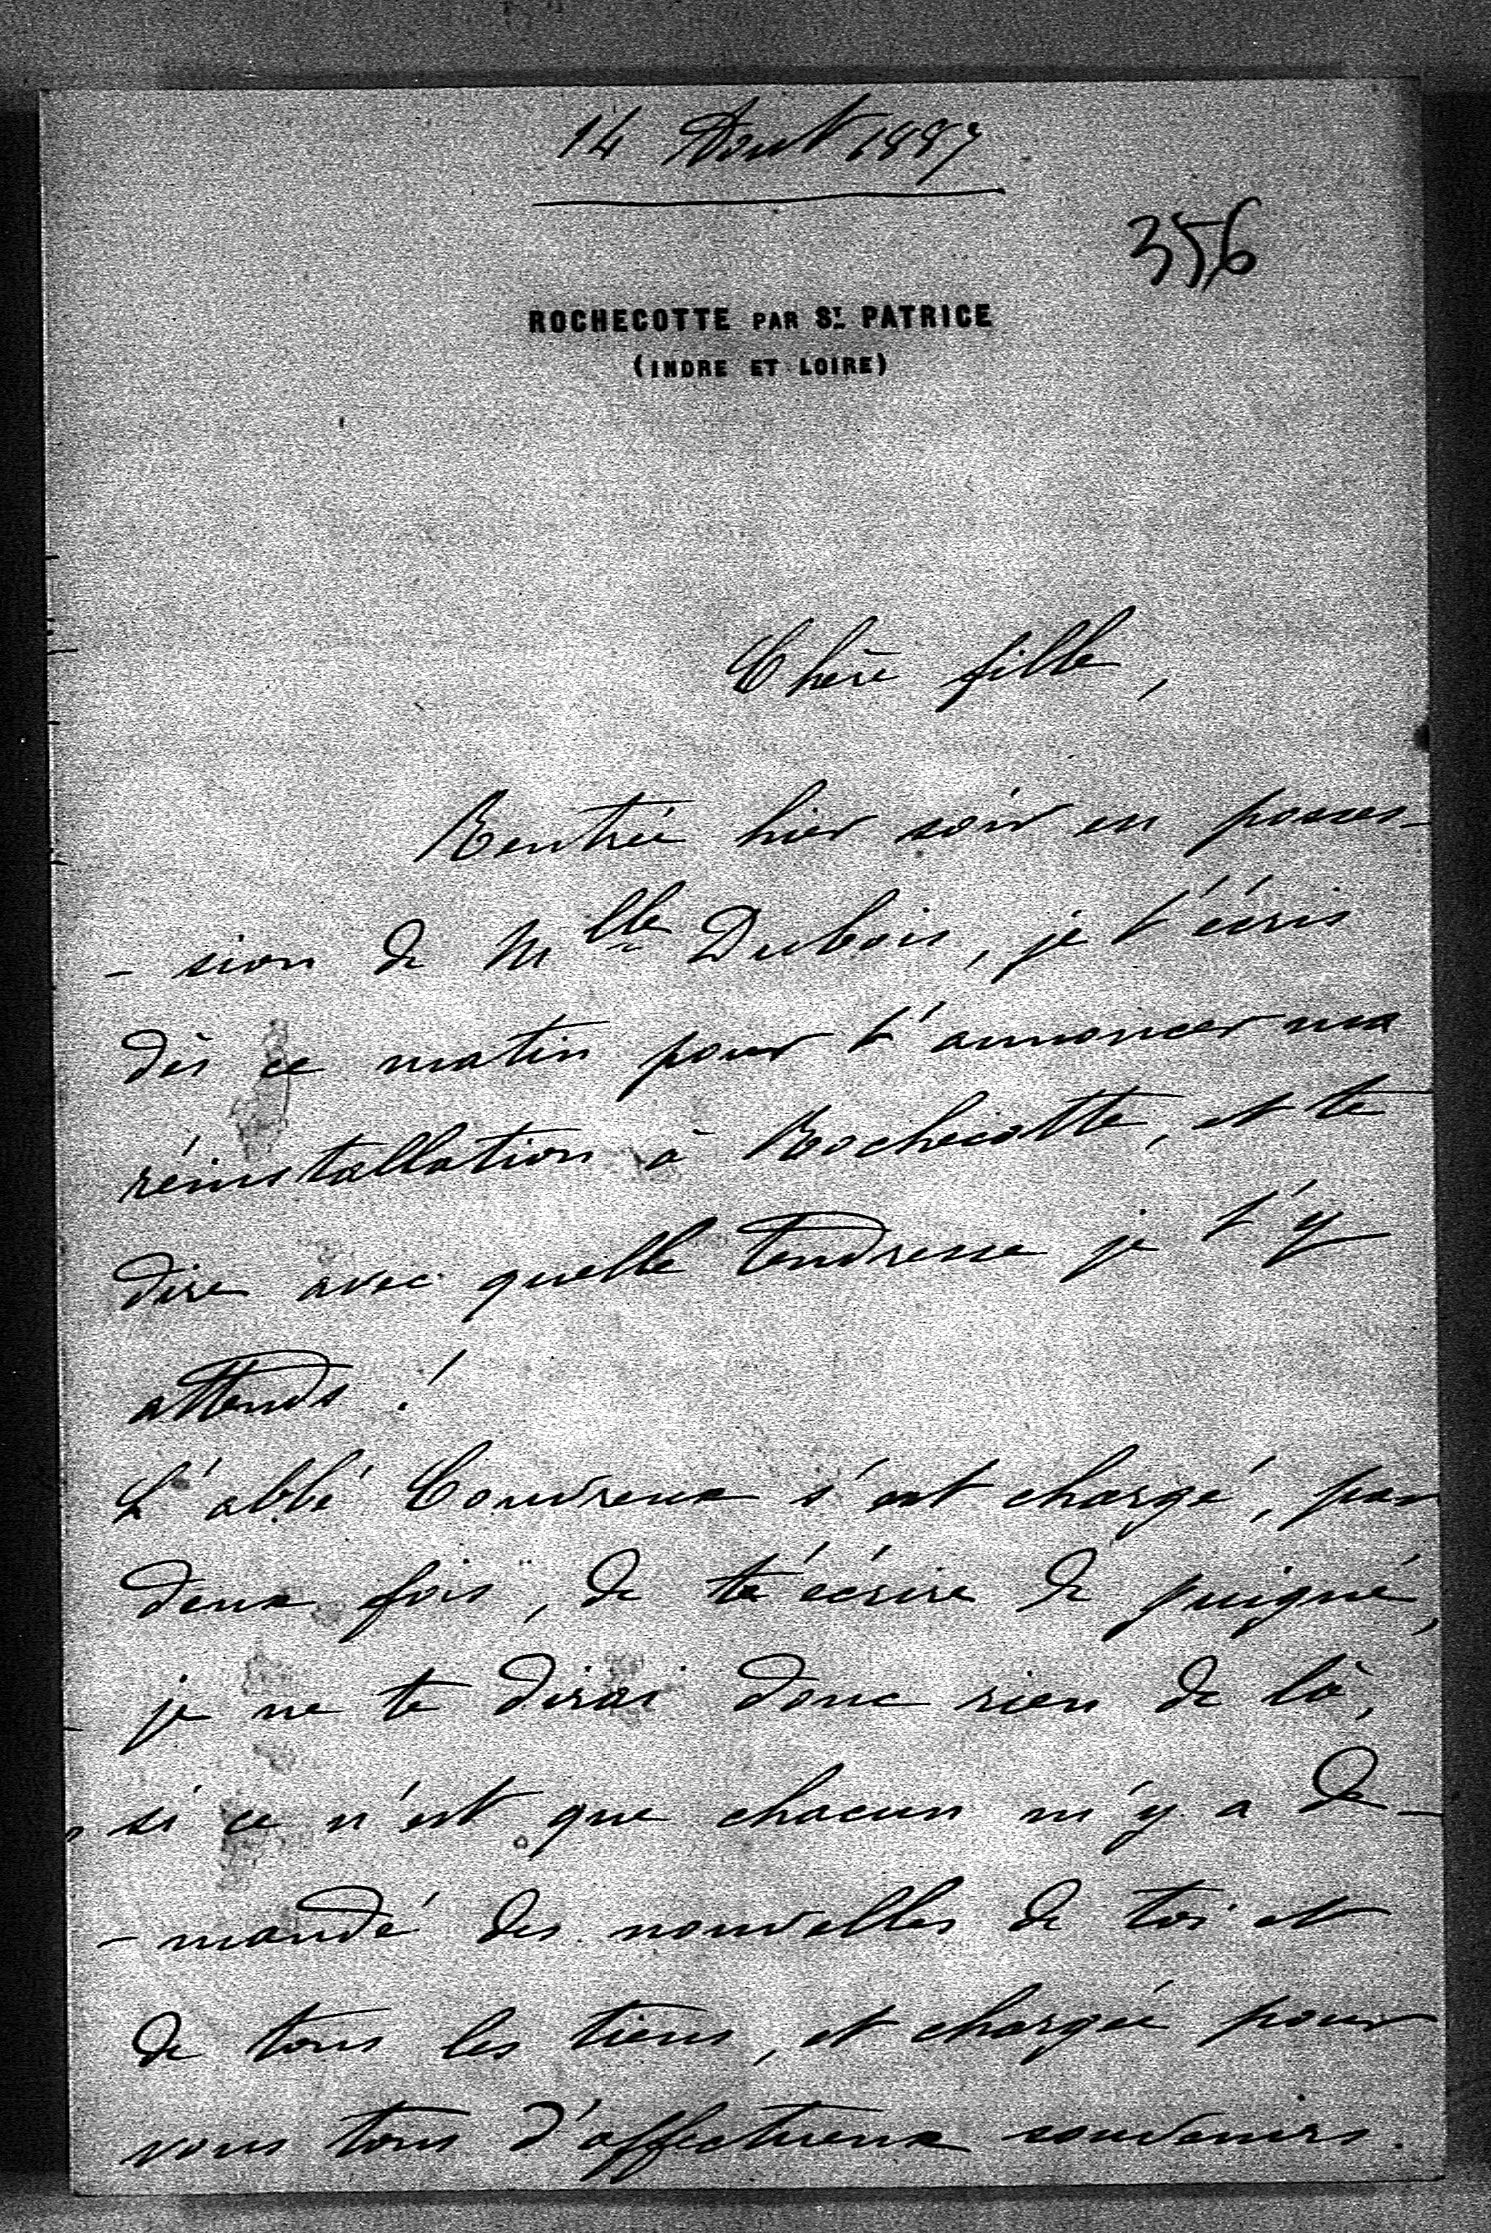 14 Aout 1887
356
ROCHECOTTE PAR ST PATRICE
(INDRE ET LOIRE)
Chère fille,
Rentrée hier soir en posses-
-sion de Mlle Dubois, je t'écris
dès ce matin pour t'annoncer ma
réinstallation à Rochecotte, et te
dire avec quelle tendresse je t'y
attends !
L'abbé Couvreux s'est chargé, par
deux fois, de t'écrire de Juigné,
je ne te dirai donc rien de là,
si ce n'est que chacun m'y a de-
-mandé des nouvelles de toi et
de tous les tiens, et chargée pour
vous tous d'affectueux souvenirs.